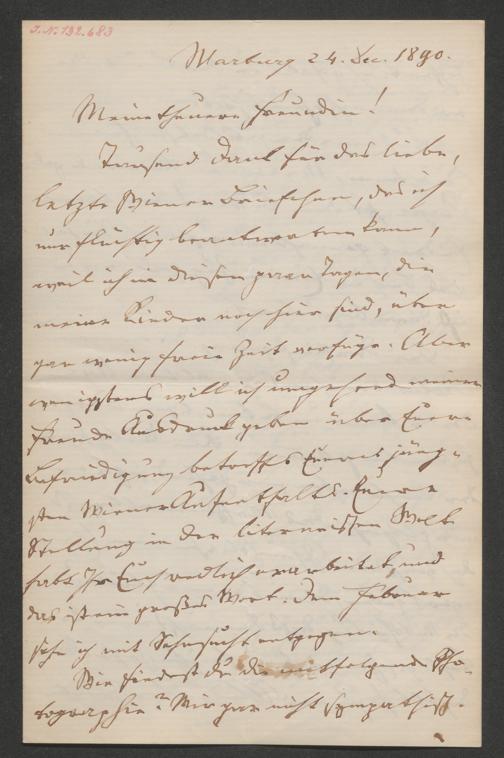 J. N. 132.683
Marburg 24. Dec. 1890.
Meine theuere Freundin!
Tausend Dank für das liebe,
letzte Wiener Briefchen, das ich
nur flüchtig beantworten kann,
weil ich in diesen paar Tagen, die
meine Kinder noch hier sind, über
gar wenig freie Zeit verfüge. Aber
wenigstens will ich umgehend meiner
Freude Ausdruck geben über Euere
Befriedigung betreffs Eueres jüng-
sten Wiener Aufenthaltes. Euere
Stellung in der literarischen Welt
habt Ihr Euch redlich erarbeitet, und
das ist ein großes Wort. Dem Februar
sehe ich mit Sehnsucht entgegen.
Wie findest du die mitfolgende Pho-
tographie? Mir gar nicht sympathisch.